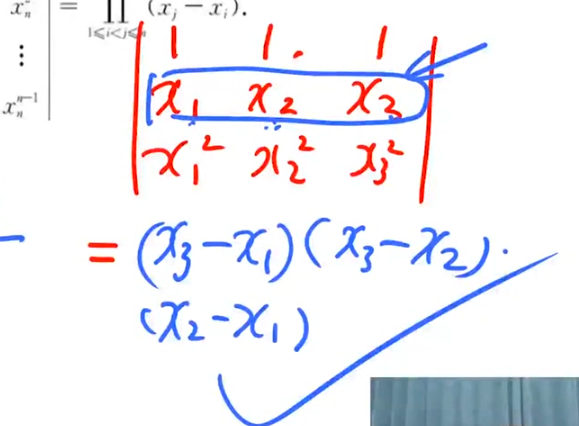 x_n^2 | = ∏_{1≤i<j≤n} (x_j − x_i).
⋮
x_n^{n−1}
1 1. 1
x₁ x₂ x₃
x₁² x₂² x₃²
= (x₃−x₁)(x₃−x₂)·
(x₂−x₁)